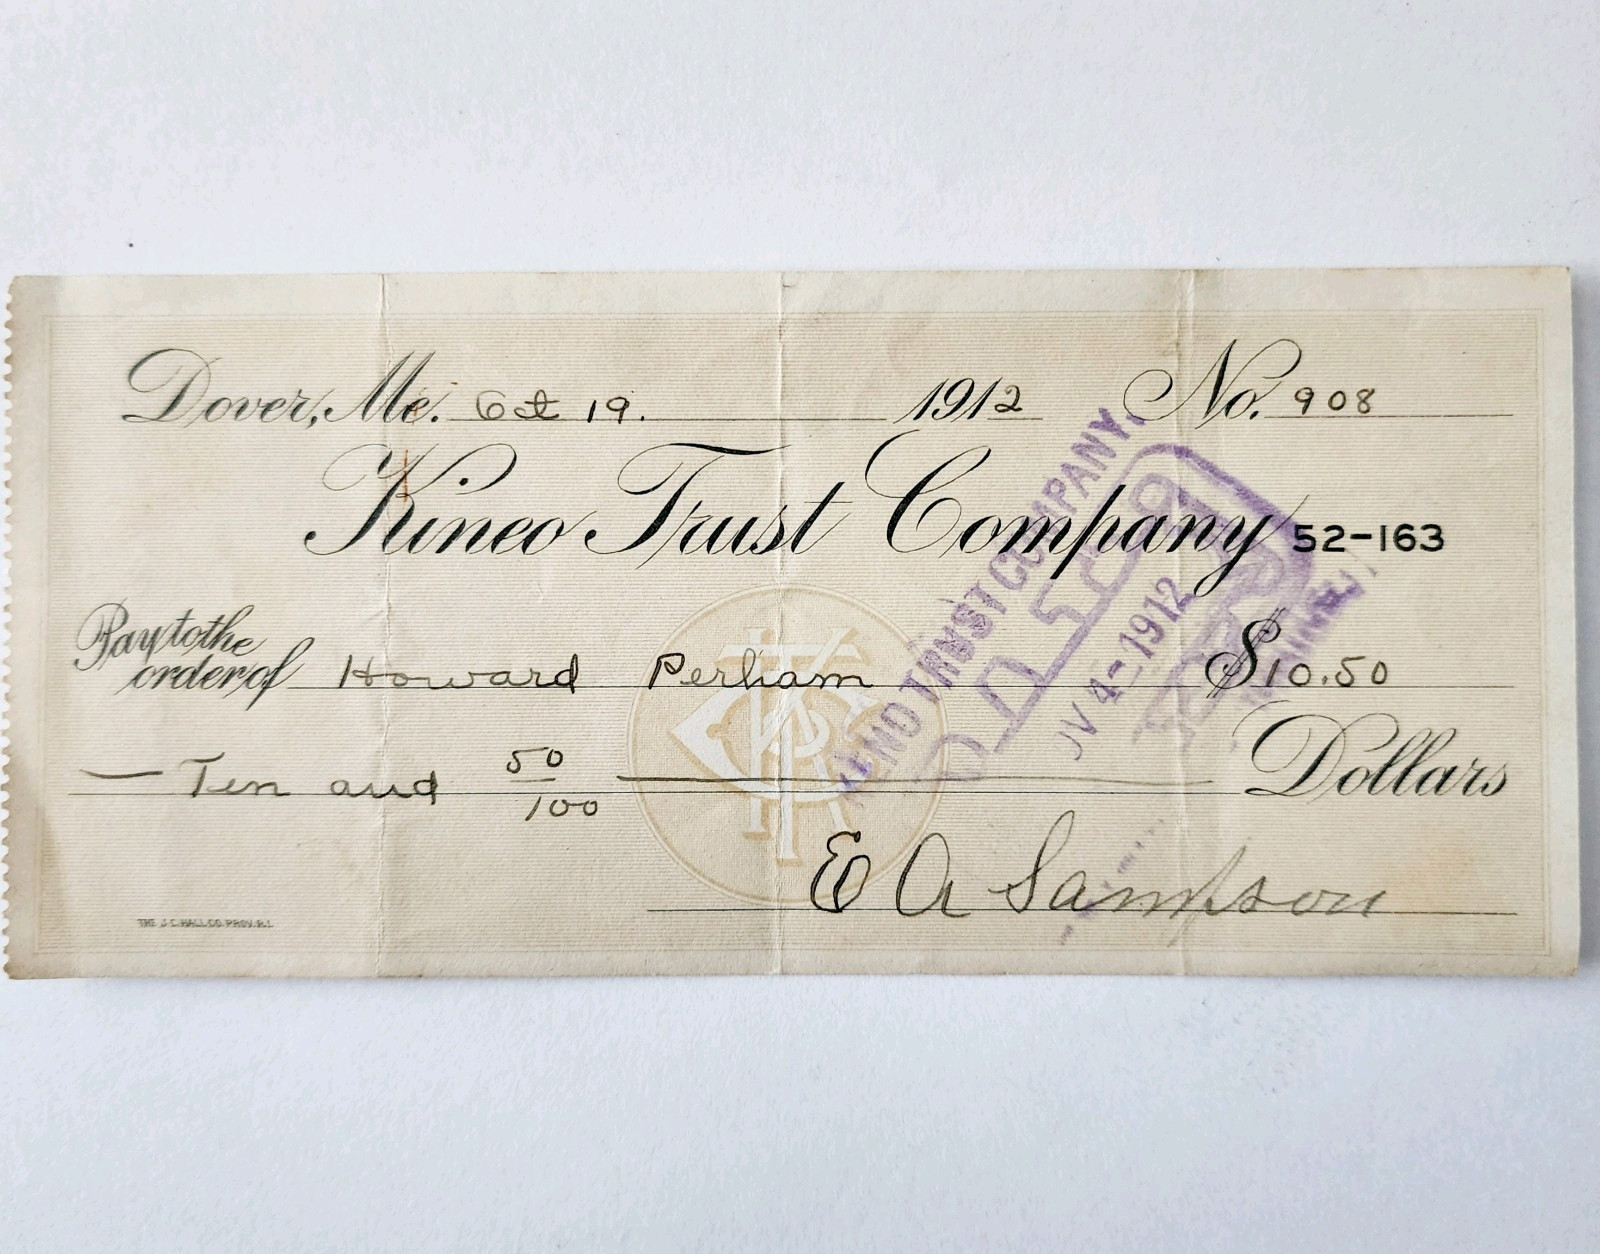 Dover, Me. Oct 19. 1912 No. 908
Kineo Trust Company 52-163
Pay to the
order of Howard Perham $10.50
— Ten and 50/100 Dollars
E A Sampson
THE J.C. HALL CO. PROV. R.I.
TRUST COMPANY.
PAID
4-1912